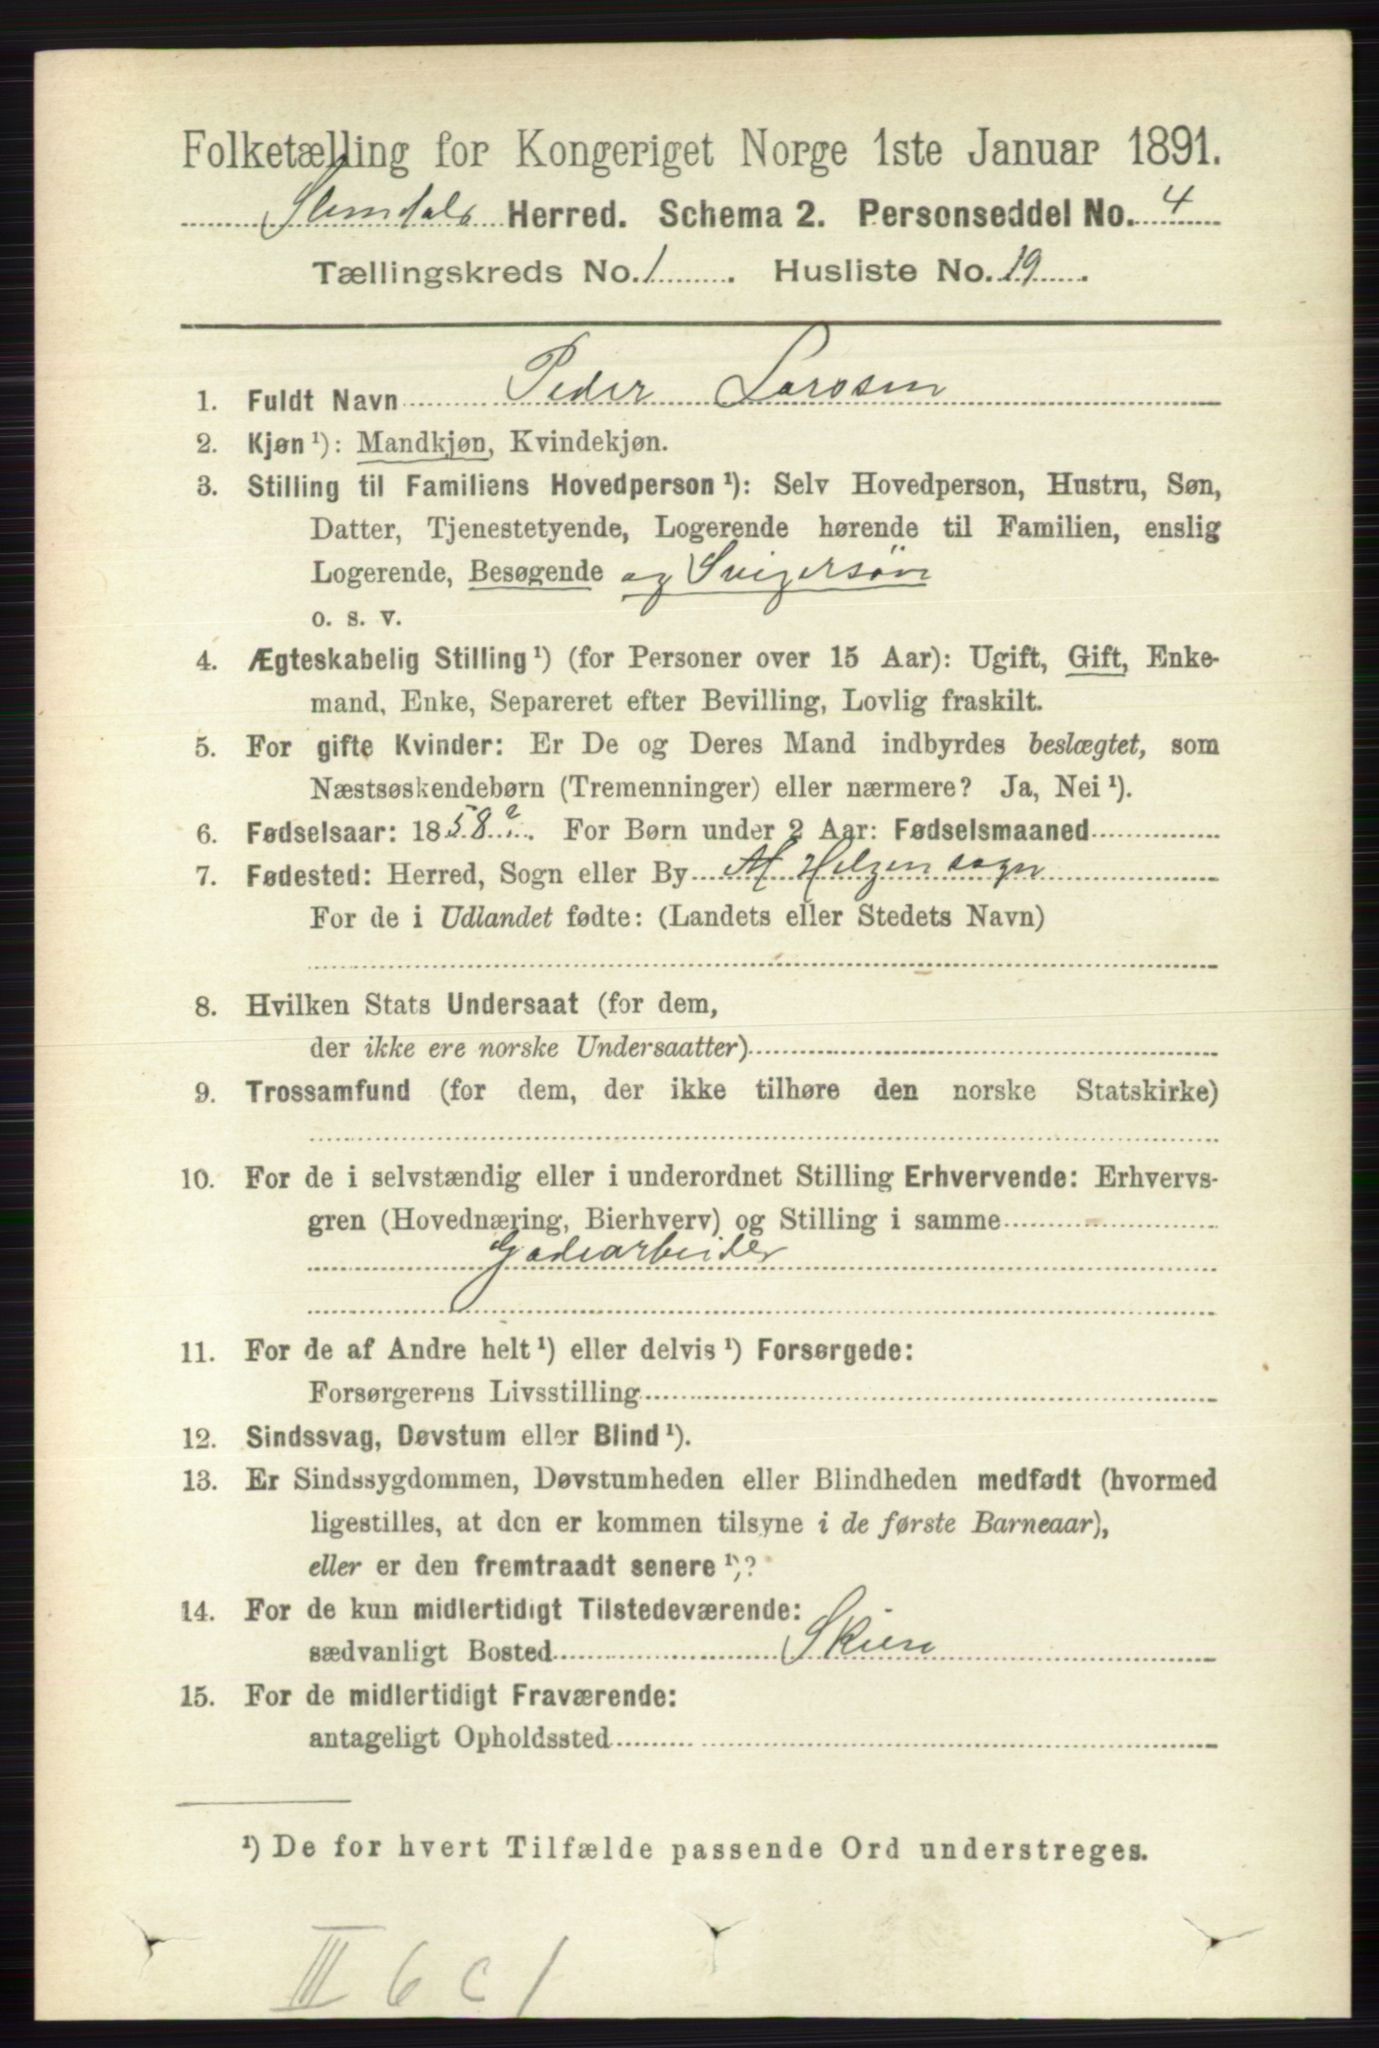 Folketælling for Kongeriget Norge 1ste Januar 1891.
Slemdals Herred. Schema 2. Personseddel No. 4
Tællingskreds No. 1. Husliste No. 19.
1. Fuldt Navn Peder Larssen
2. Kjøn ¹): Mandkjøn, Kvindekjøn.
3. Stilling til Familiens Hovedperson ¹): Selv Hovedperson, Hustru, Søn,
Datter, Tjenestetyende, Logerende hørende til Familien, enslig
Logerende, Besøgende og Svigersøn
o. s. v.
4. Ægteskabelig Stilling ¹) (for Personer over 15 Aar): Ugift, Gift, Enke-
mand, Enke, Separeret efter Bevilling, Lovlig fraskilt.
5. For gifte Kvinder: Er De og Deres Mand indbyrdes beslægtet, som
Næstsøskendebørn (Tremenninger) eller nærmere? Ja, Nei ¹).
6. Fødselsaar: 1858?. For Børn under 2 Aar: Fødselsmaaned
7. Fødested: Herred, Sogn eller By Helgen sogn
For de i Udlandet fødte: (Landets eller Stedets Navn)
8. Hvilken Stats Undersaat (for dem,
der ikke ere norske Undersaatter)
9. Trossamfund (for dem, der ikke tilhøre den norske Statskirke)
10. For de i selvstændig eller i underordnet Stilling Erhvervende: Erhvervs-
gren (Hovednæring, Bierhverv) og Stilling i samme
Gadearbeider
11. For de af Andre helt ¹) eller delvis ¹) Forsørgede:
Forsørgerens Livsstilling
12. Sindssvag, Døvstum eller Blind ¹).
13. Er Sindssygdommen, Døvstumheden eller Blindheden medfødt (hvormed
ligestilles, at den er kommen tilsyne i de første Barneaar),
eller er den fremtraadt senere ¹)?
14. For de kun midlertidigt Tilstedeværende:
sædvanligt Bosted Skien
15. For de midlertidigt Fraværende:
antageligt Opholdssted
¹) De for hvert Tilfælde passende Ord understreges.
III 6 c 1